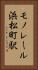 モノレール
浜松町駅